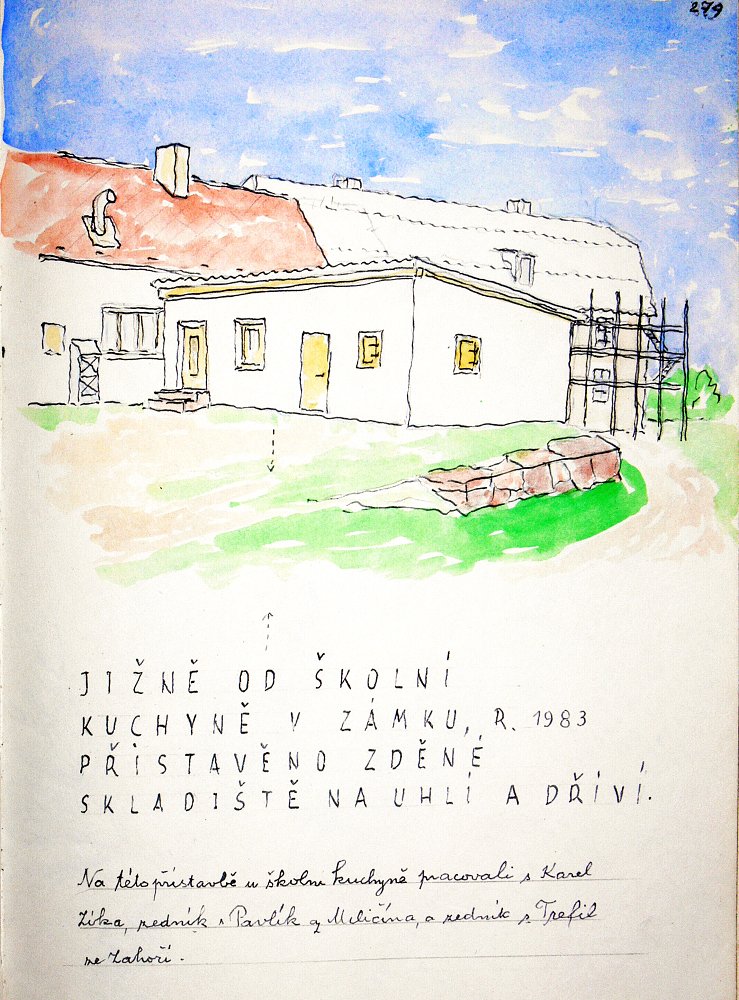 279
JIŽNĚ OD ŠKOLNÍ
KUCHYNĚ V ZÁMKU, R. 1983
PŘISTAVĚNO ZDĚNÉ
SKLADIŠTĚ NA UHLÍ A DŘÍVÍ.
Na této přístavbě u školní kuchyně pracovali s Karel
Zíka, zedník s Pavlík z Miličína, a zedník s Trefil
ze Zahoří.